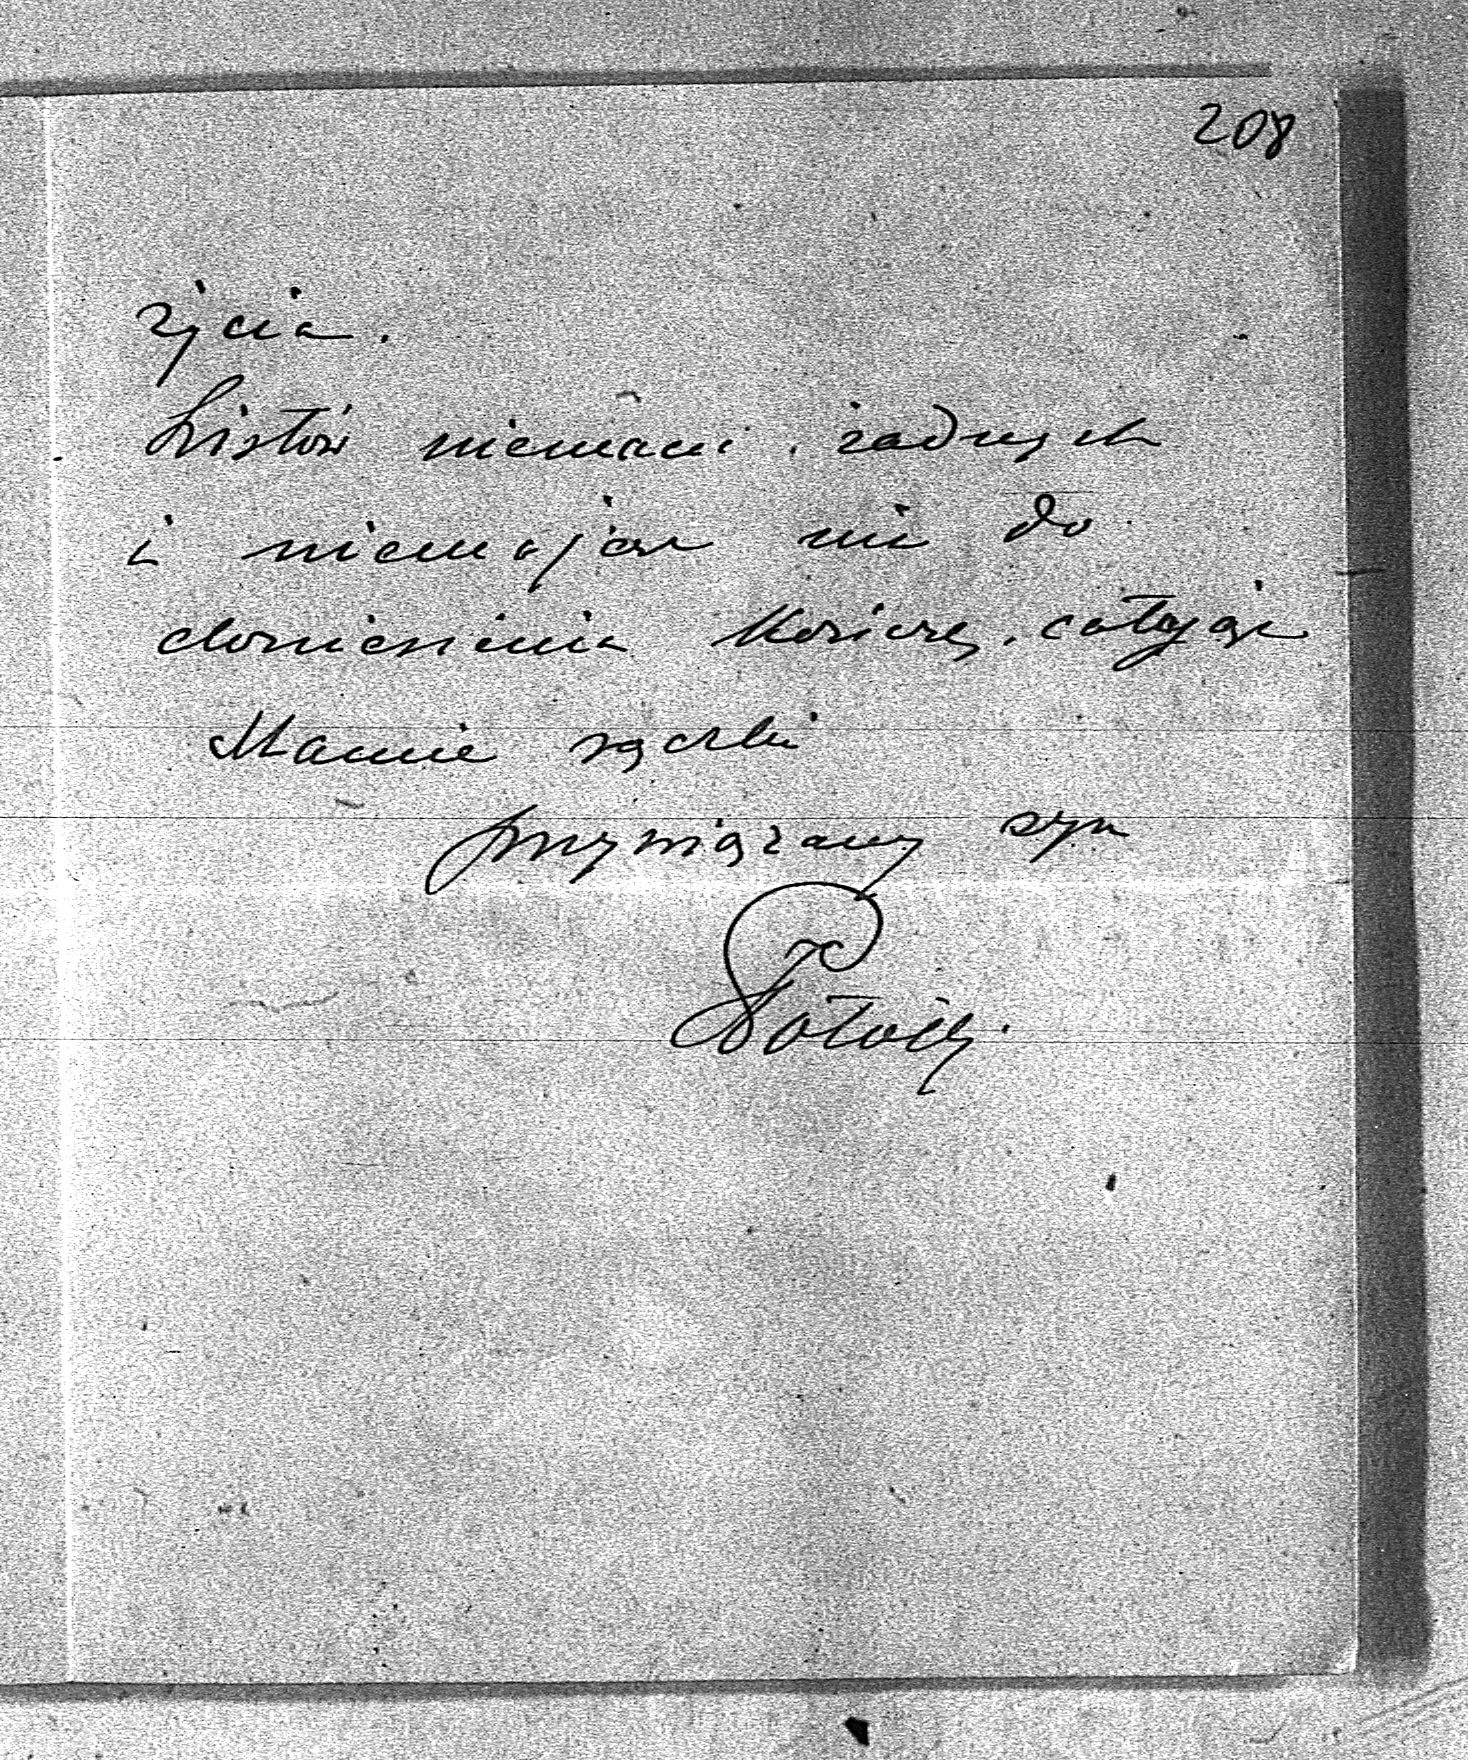 208
życia.
Listów niemam żadnych
i niemając nic do
doniesienia kończę, całując
Mamie rączki
przywiązany syn